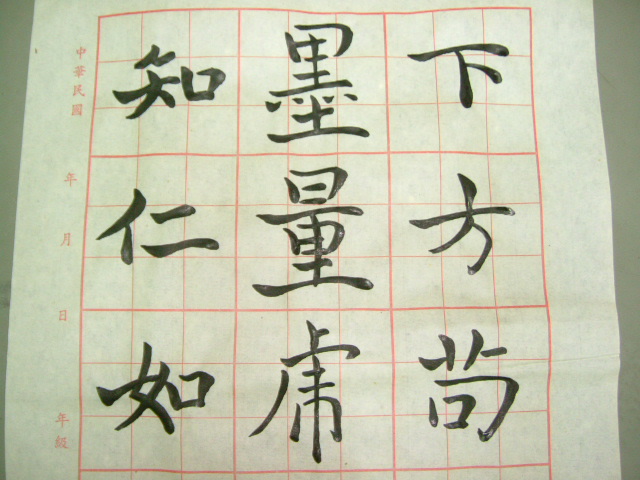 下方苟
墨量
知仁如
中華民國 年 月 日 年級